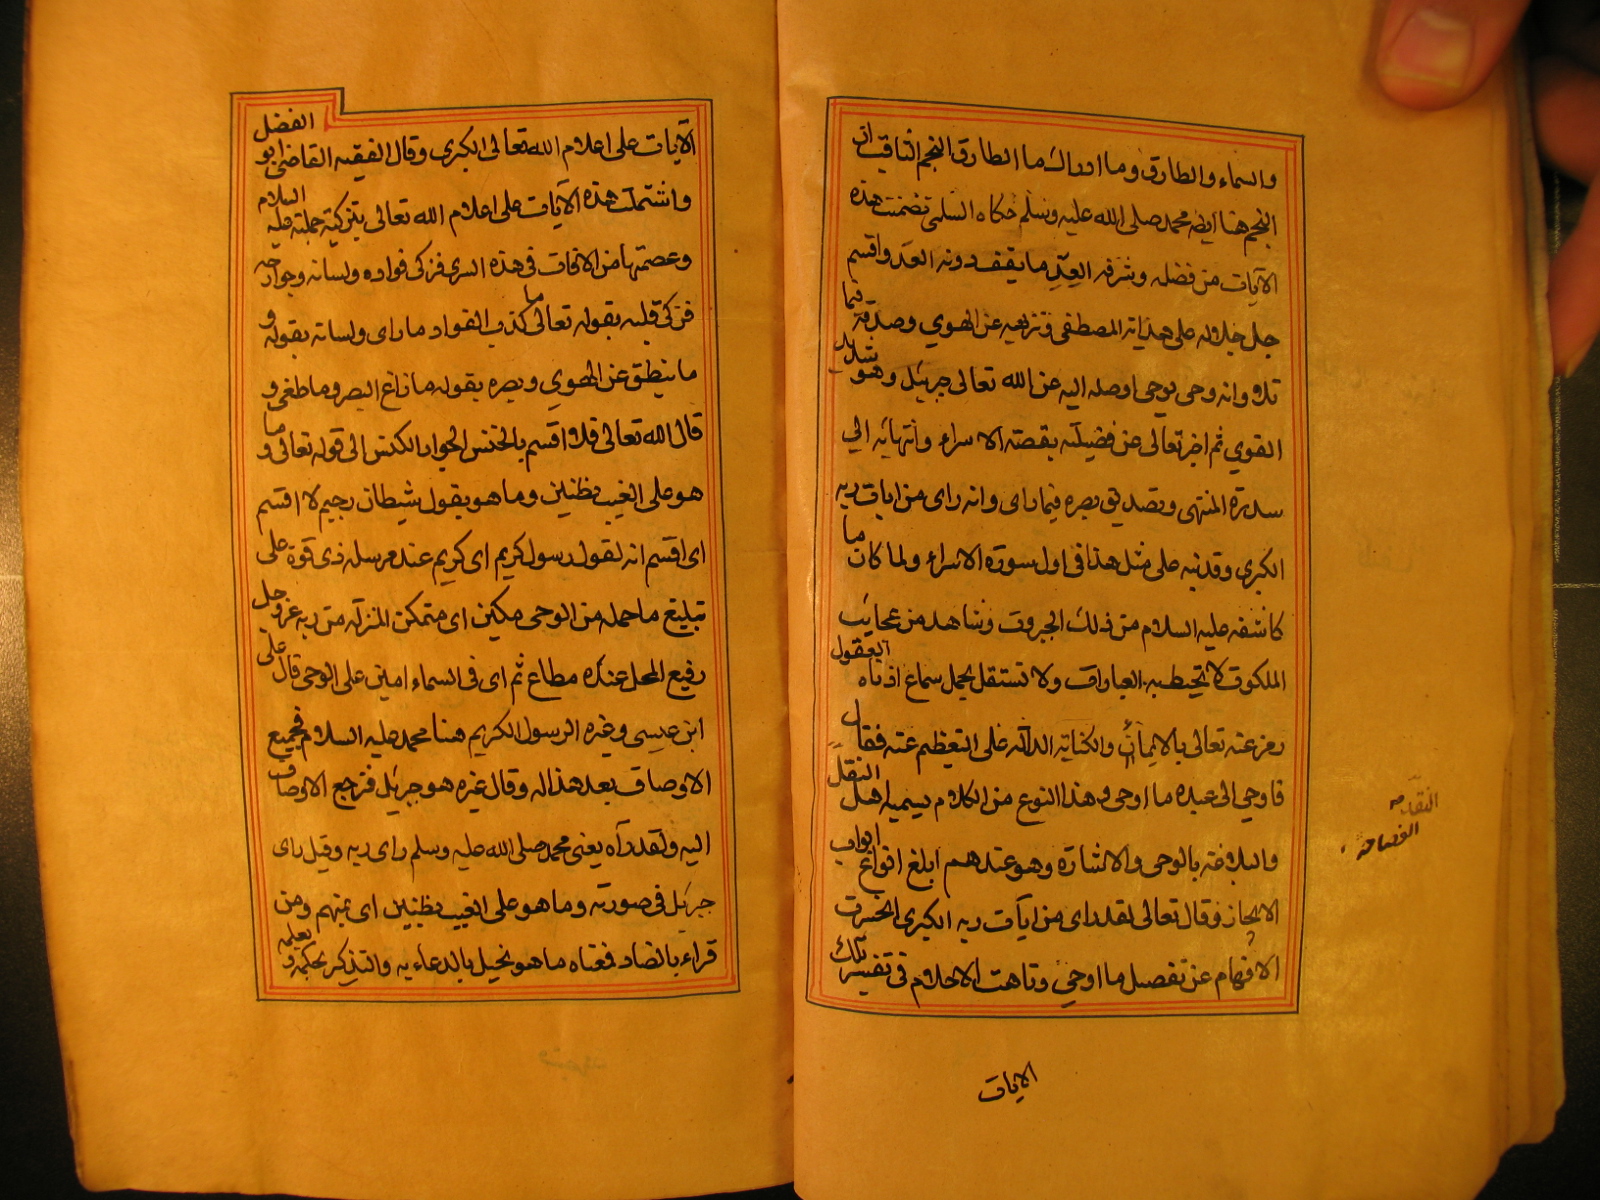 والسماء والطارق وما ادراك ما الطارق النجم الثاقب ان
النجم هنا ايضه محمد صلى الله عليه وسلم حكاه السلمى تضمنت هذه
الايات من فضله وشرفه العد ما يقف دونه العد واقسم
جل جلاله على هداية المصطفى وتنزيهه عن الهوي وصدقه فيما
تلا وانه وحى يوحى اوصله اليه عن الله تعالى جبرئيل وهو شديد
القوي ثم اخبر تعالى عن فضيلته بقصته الاسراء وانتهائه الي
سدرة المنتهى وتصديق بصره فيما راى وانه راى من ايات ربه
الكبرى وقد نبه على مثل هذا فى اول سورة الاسراء ولما كان ما
كاشفه عليه السلام من ذلك الجبروت وشاهد من عجايب
الملكوت لا تحيط به العبارات ولا تستقل بحمل سماع ادناه العقول
رمز عنه تعالى بالايماء والكناية الدالة على التعظيم عنه فقال
فاوحى الى عبده ما اوحى وهذا النوع من الكلام يسميه اهل النقل
والبلاغة بالوحى والاشارة وهو عندهم ابلغ انواع ابواب
الايجاز وقال تعالى لقد راى من ايات ربه الكبرى انحسرت
الافهام عن تفصيل ما اوحي وتاهت الاحلام فى تفسير تلك
الايات
النقد مه
الفصاحة
الايات على اعلام الله تعالى الكبرى وقال الفقيه القاضى ابو الفضل
واشتملت هذه الايات على اعلام الله تعالى بتزكية جملته عليه السلام
وعصمتها من الافات فى هذه السرى فزكى فواده ولسانه وجوارحه
فزكى قلبه بقوله تعالى ما كذب الفواد ما راى ولسانه بقوله و
ما ينطق عن الهوي وبصره بقوله ما زاغ البصر وما طغى و
قال الله تعالى فلا اقسم بالخنس الجوار الكنس الى قوله تعالى وما
هو على الغيب بظنين وما هو بقول شيطان رجيم لا اقسم
اى اقسم انه لقول رسول كريم اى كريم عند مرسله ذى قوة على
تبليغ ما حمله من الوحى مكين اى متمكن المنزلة من ربه عز وجل
رفيع المحل عنده مطاع ثم اى فى السماء امين على الوحى قال على
ابن عيسى وغيره الرسول الكريم هنا محمد عليه السلام فجميع
الاوصاف بعد هذا له وقال غيره هو جبرئيل فترجع الاوصاف
اليه ولقد رآه يعنى محمد صلى الله عليه وسلم راى ربه وقيل راى
جبرئيل فى صورته وما هو على الغيب بظنين اى بمتهم ومن
قراء بالضاد فمعناه ما هو بخيل بالدعاء به والتذكير بحكمه و بعلمه